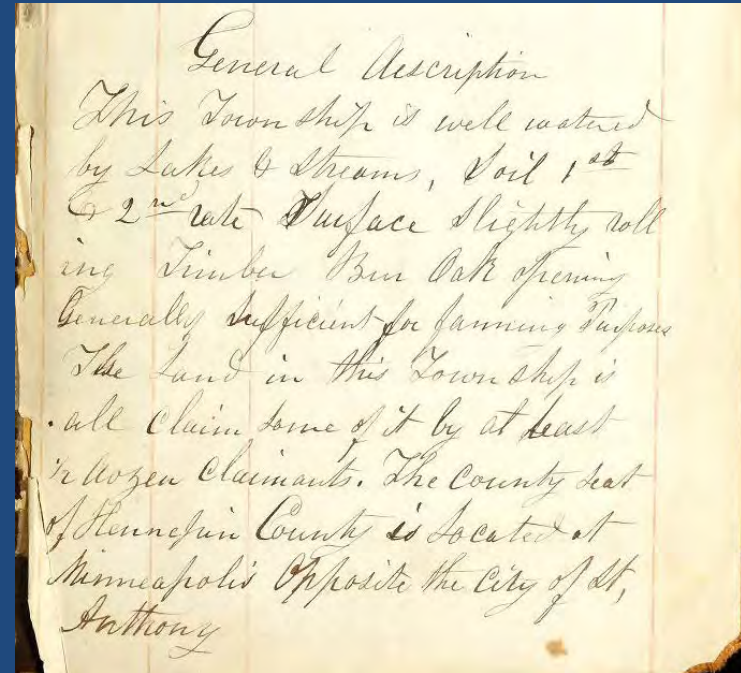 General description
This Township is well watered
by Lakes & Streams, Soil 1st
& 2nd rate Surface Slightly roll
ing Timber Bur Oak opening
Generally Sufficient for farming Purposes
The Land in this Township is
all claim some of it by at least
1/2 dozen Claimants. The County Seat
of Hennepin County is Located at
Minneapolis Opposite the City of St,
Anthony